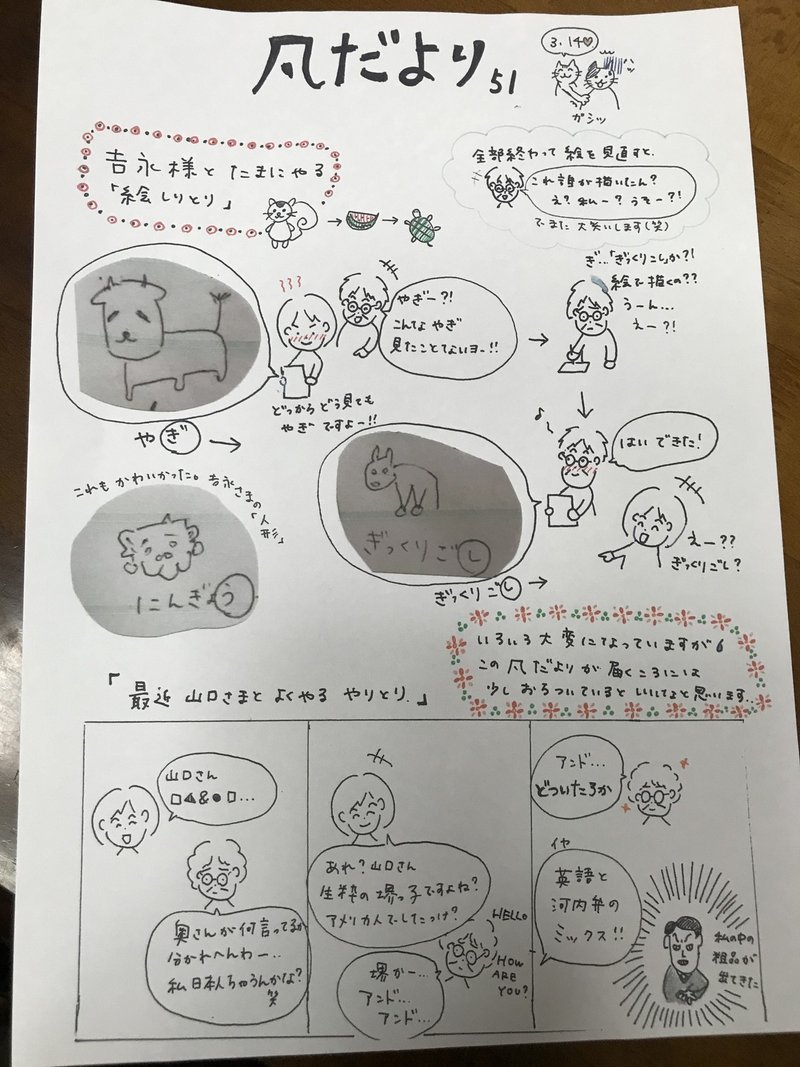 凡だより 51
3.14♡
ガシッ
吉永様と たまにやる
「絵しりとり」
全部終わって 絵を見直すと、
これ誰が描いたん?
え?私ー?うそー?!
でまた 大笑いします(笑)
やぎー?!
こんな やぎ
見たことないヨー!!
ぎ…「ぎっくりこし」か?!
絵で描くの??
うーん…
えー?!
どっからどう見ても
やぎ ですよー!!
やぎ
はい できた!
これも かわいかった。吉永さまの
「人形」
にんぎょう
ぎっくりごし
ぎっくりごし
えー??
ぎっくりごし?
いろいろ大変になっていますが
この 凡だよりが 届くころには
少し おちついていると いいなと思います..
「最近 山口さまと よくやる やりとり.」
山口さん
□▲&●□…
奥さんが何言ってるか
分かれへんわー…
私 日本人ちゃうんかな?
笑
あれ?山口さん
生粋の堺っ子ですよね?
アメリカ人でしたっけ?
HELLO
HOW
ARE
YOU?
堺がー…
アンド…
アンド…
アンド…
どついたろか
イヤ
英語と
河内弁の
ミックス!!
私の中の
粗品が
出てきた